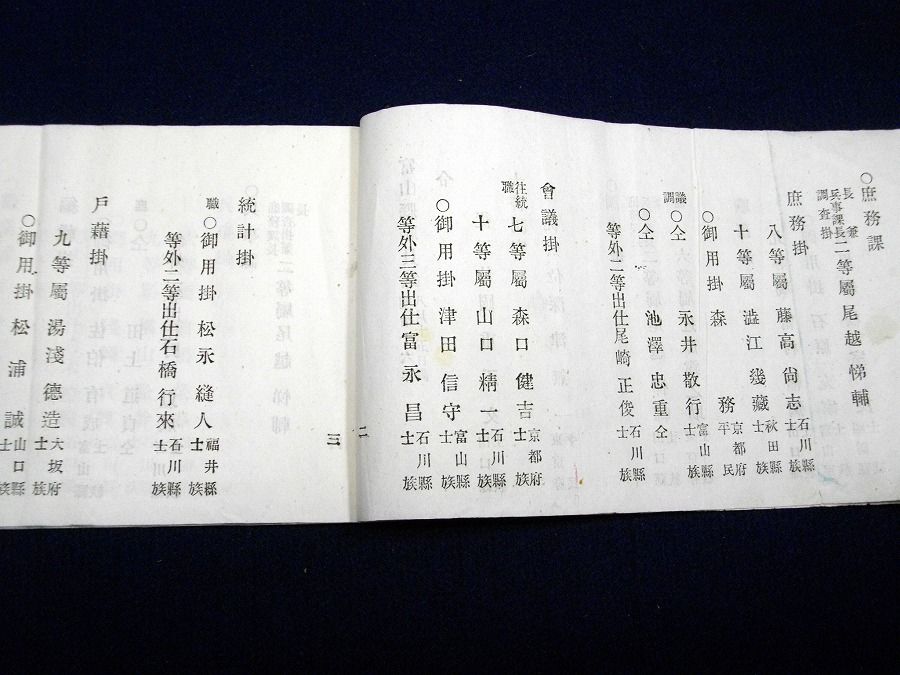 ○庶務課
長兼兵事課長調査掛 二等屬 尾越悌輔
庶務掛
八等屬 藤高尚志 石川縣士族
十等屬 澁江幾藏 秋田縣士族
○御用掛 森務 京都府平民
議調○仝 永井散行 富山縣士族
○仝 池澤忠重 仝
等外二等出仕 尾崎正俊 石川縣士族
會議掛
往統職 七等屬 森口健吉 京都府士族
十等屬 山口精一 石川縣士族
○御用掛 津田信守 富山縣士族
等外三等出仕 富永昌 石川縣士族
二
三
統計掛
職○御用掛 松永縫人 福井縣士族
等外二等出仕 石橋行來 石川縣士族
戸藉掛
九等屬 湯淺德造 大坂府士族
○御用掛 松浦誠 山口縣士族